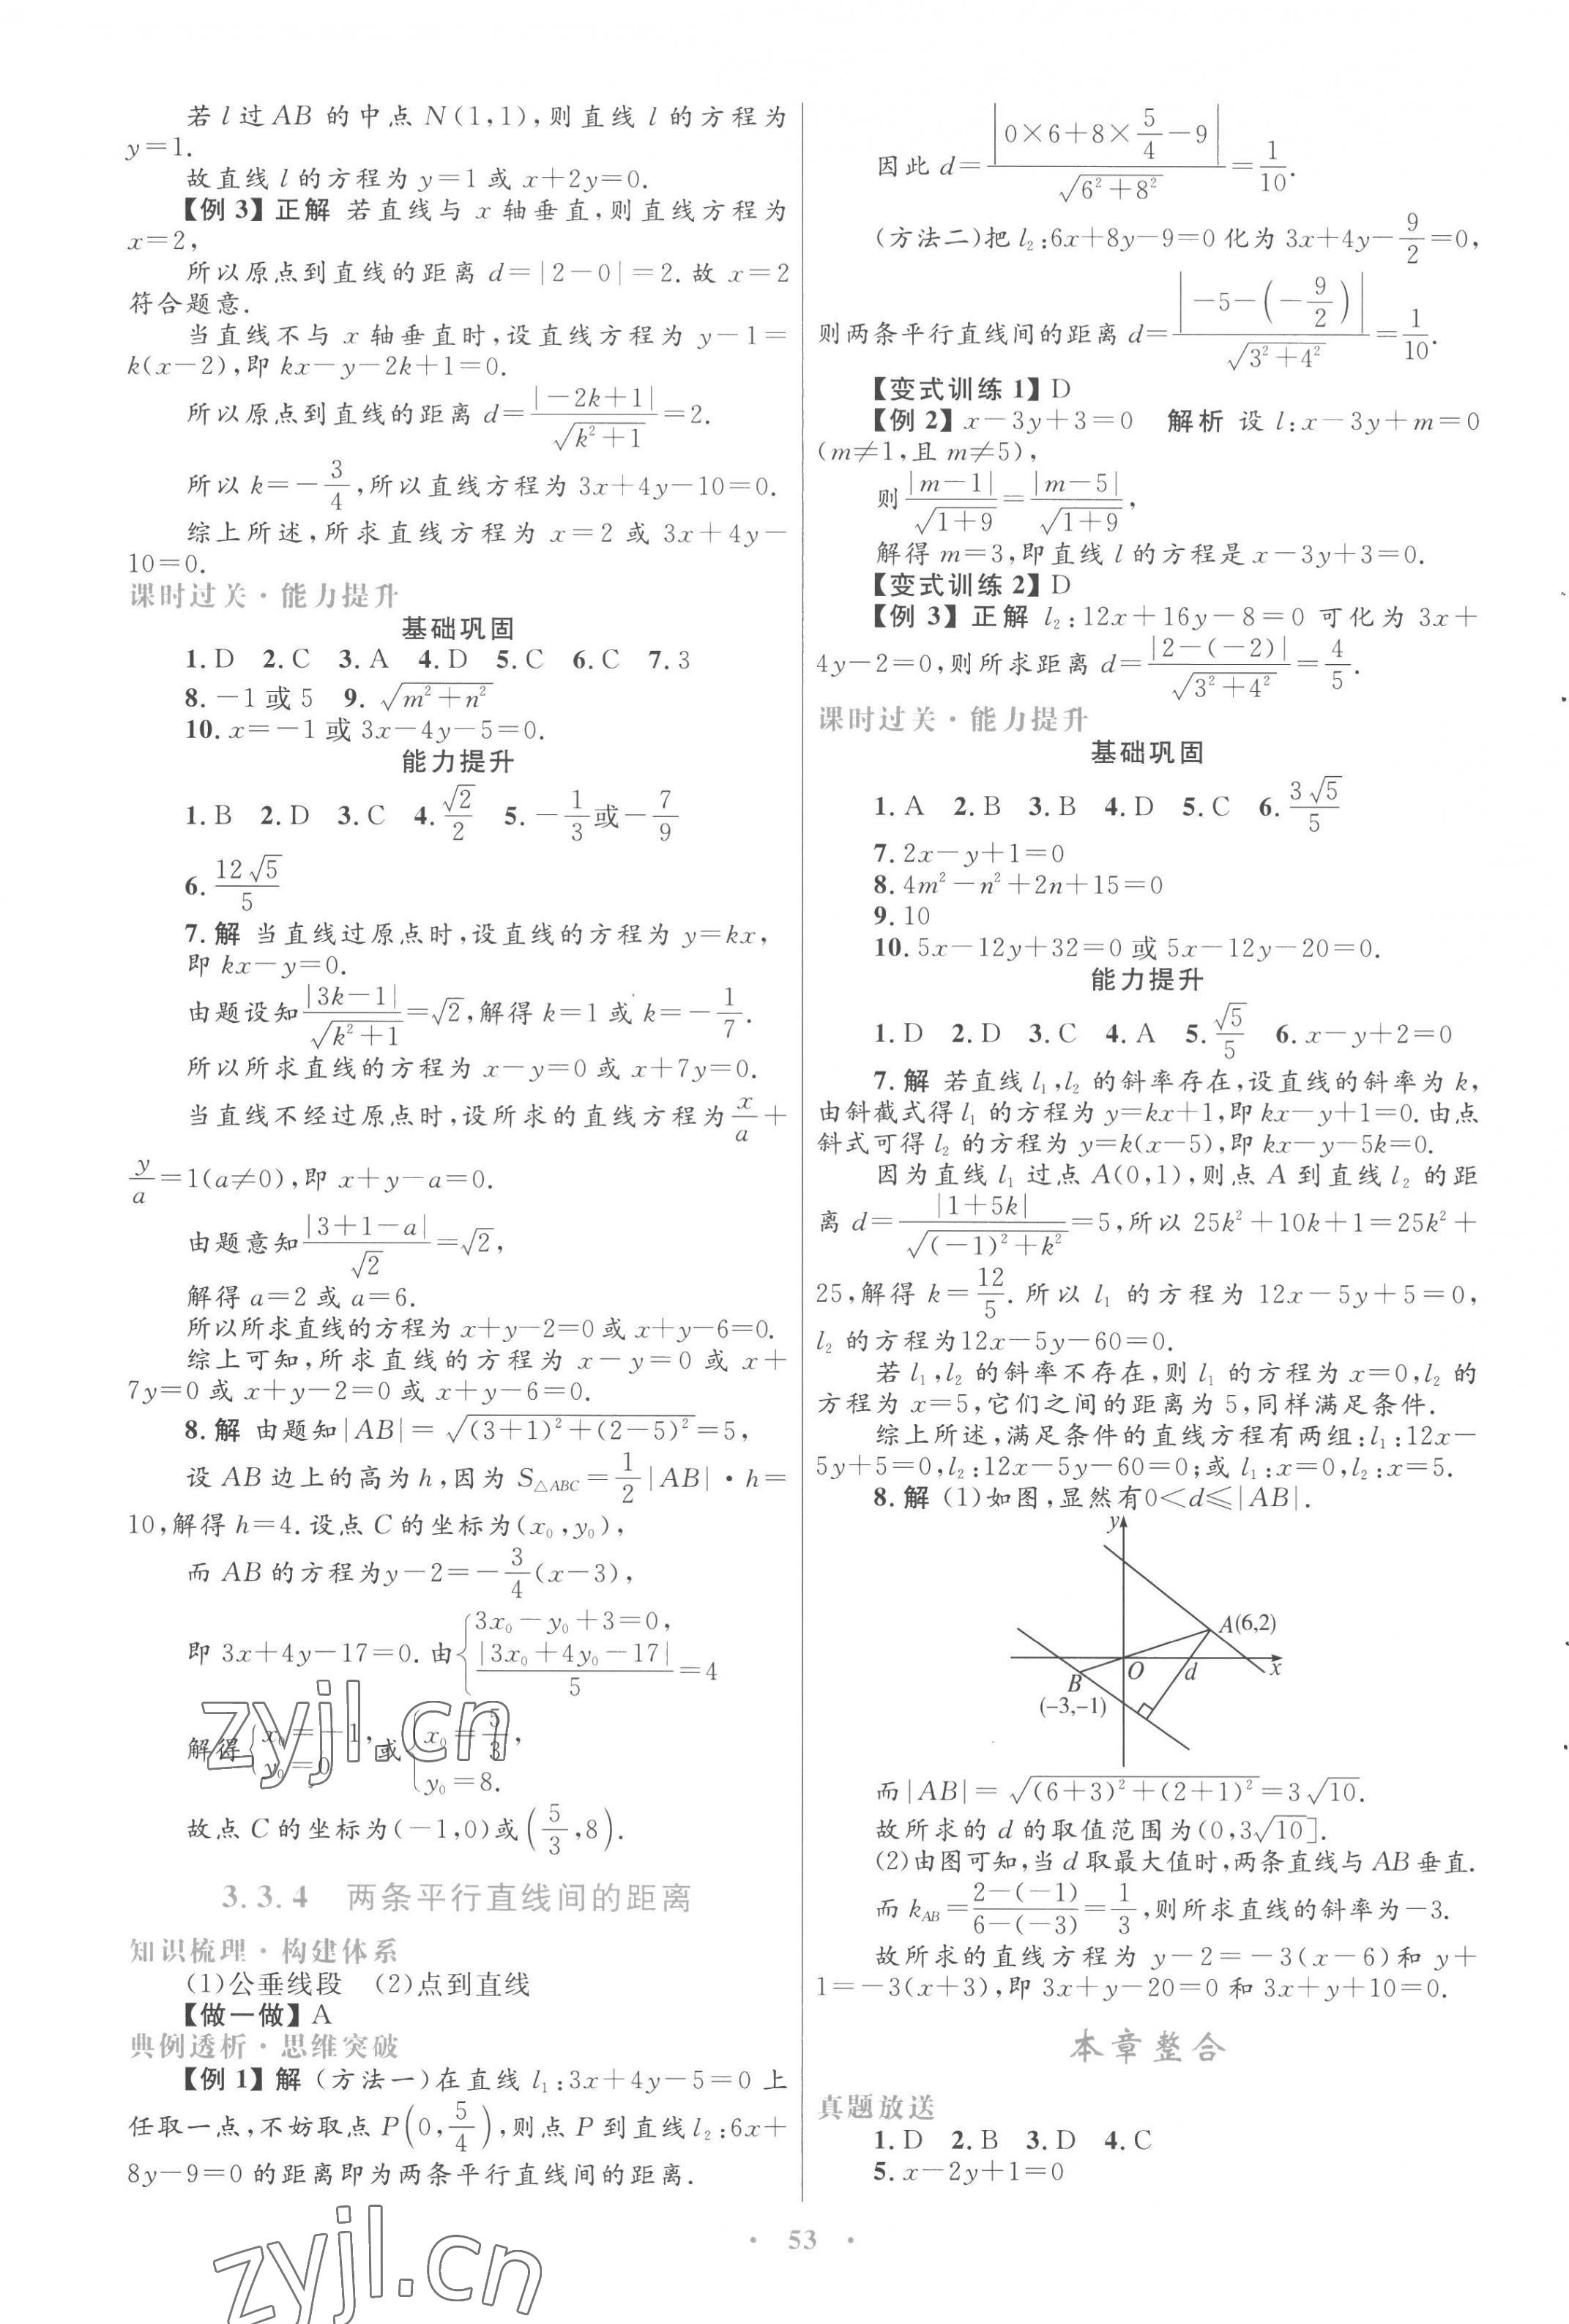 若 l 过 AB 的中点 N(1,1),则直线 l 的方程为
y=1.
故直线 l 的方程为 y=1 或 x+2y=0.
【例 3】正解 若直线与 x 轴垂直,则直线方程为
x=2,
所以原点到直线的距离 d=|2-0|=2.故 x=2
符合题意.
当直线不与 x 轴垂直时,设直线方程为 y-1=
k(x-2),即 kx-y-2k+1=0.
所以原点到直线的距离 d=|-2k+1|/√(k²+1)=2.
所以 k=-3/4,所以直线方程为 3x+4y-10=0.
综上所述,所求直线方程为 x=2 或 3x+4y-
10=0.
课时过关·能力提升
基础巩固
1.D 2.C 3.A 4.D 5.C 6.C 7.3
8.-1 或 5 9.√(m²+n²)
10.x=-1 或 3x-4y-5=0.
能力提升
1.B 2.D 3.C 4.√2/2 5.-1/3或-7/9
6.12√5/5
7.解 当直线过原点时,设直线的方程为 y=kx,
即 kx-y=0.
由题设知|3k-1|/√(k²+1)=√2,解得 k=1 或 k=-1/7.
所以所求直线的方程为 x-y=0 或 x+7y=0.
当直线不经过原点时,设所求的直线方程为x/a+
y/a=1(a≠0),即 x+y-a=0.
由题意知|3+1-a|/√2=√2,
解得 a=2 或 a=6.
所以所求直线的方程为 x+y-2=0 或 x+y-6=0.
综上可知,所求直线的方程为 x-y=0 或 x+
7y=0 或 x+y-2=0 或 x+y-6=0.
8.解 由题知|AB|=√((3+1)²+(2-5)²)=5,
设 AB 边上的高为 h,因为 S△ABC=1/2|AB|·h=
10,解得 h=4.设点 C 的坐标为(x₀,y₀),
而 AB 的方程为y-2=-3/4(x-3),
即 3x+4y-17=0.由{3x₀-y₀+3=0, |3x₀+4y₀-17|/5=4
解得{x₀=-1, y₀=0 或{x₀=5/3, y₀=8.
故点 C 的坐标为(-1,0)或(5/3,8).
3.3.4 两条平行直线间的距离
知识梳理·构建体系
(1)公垂线段 (2)点到直线
【做一做】A
典例透析·思维突破
【例 1】解 (方法一)在直线 l₁:3x+4y-5=0 上
任取一点,不妨取点 P(0,5/4),则点 P 到直线 l₂:6x+
8y-9=0 的距离即为两条平行直线间的距离.
因此 d=|0×6+8×5/4-9|/√(6²+8²)=1/10.
(方法二)把 l₂:6x+8y-9=0 化为 3x+4y-9/2=0,
则两条平行直线间的距离 d=|-5-(-9/2)|/√(3²+4²)=1/10.
【变式训练 1】D
【例 2】x-3y+3=0 解析 设 l:x-3y+m=0
(m≠1,且 m≠5),
则|m-1|/√(1+9)=|m-5|/√(1+9),
解得 m=3,即直线 l 的方程是 x-3y+3=0.
【变式训练 2】D
【例 3】正解 l₂:12x+16y-8=0 可化为 3x+
4y-2=0,则所求距离 d=|2-(-2)|/√(3²+4²)=4/5.
课时过关·能力提升
基础巩固
1.A 2.B 3.B 4.D 5.C 6.3√5/5
7.2x-y+1=0
8.4m²-n²+2n+15=0
9.10
10.5x-12y+32=0 或 5x-12y-20=0.
能力提升
1.D 2.D 3.C 4.A 5.√5/5 6.x-y+2=0
7.解 若直线 l₁,l₂ 的斜率存在,设直线的斜率为 k,
由斜截式得 l₁ 的方程为 y=kx+1,即 kx-y+1=0.由点
斜式可得 l₂ 的方程为 y=k(x-5),即 kx-y-5k=0.
因为直线 l₁ 过点 A(0,1),则点 A 到直线 l₂ 的距
离 d=|1+5k|/√((-1)²+k²)=5,所以 25k²+10k+1=25k²+
25,解得 k=12/5.所以 l₁ 的方程为 12x-5y+5=0,
l₂ 的方程为12x-5y-60=0.
若 l₁,l₂ 的斜率不存在,则 l₁ 的方程为 x=0,l₂ 的
方程为 x=5,它们之间的距离为 5,同样满足条件.
综上所述,满足条件的直线方程有两组:l₁:12x-
5y+5=0,l₂:12x-5y-60=0;或 l₁:x=0,l₂:x=5.
8.解 (1)如图,显然有0<d≤|AB|.
y
A(6,2)
B
O
d
x
(-3,-1)
而|AB|=√((6+3)²+(2+1)²)=3√10.
故所求的 d 的取值范围为(0,3√10].
(2)由图可知,当 d 取最大值时,两条直线与 AB 垂直.
而 kAB=2-(-1)/6-(-3)=1/3,则所求直线的斜率为-3.
故所求的直线方程为 y-2=-3(x-6)和 y+
1=-3(x+3),即 3x+y-20=0 和 3x+y+10=0.
本章整合
真题放送
1.D 2.B 3.D 4.C
5.x-2y+1=0
· 53 ·
zyjl.cn
zyjl.cn